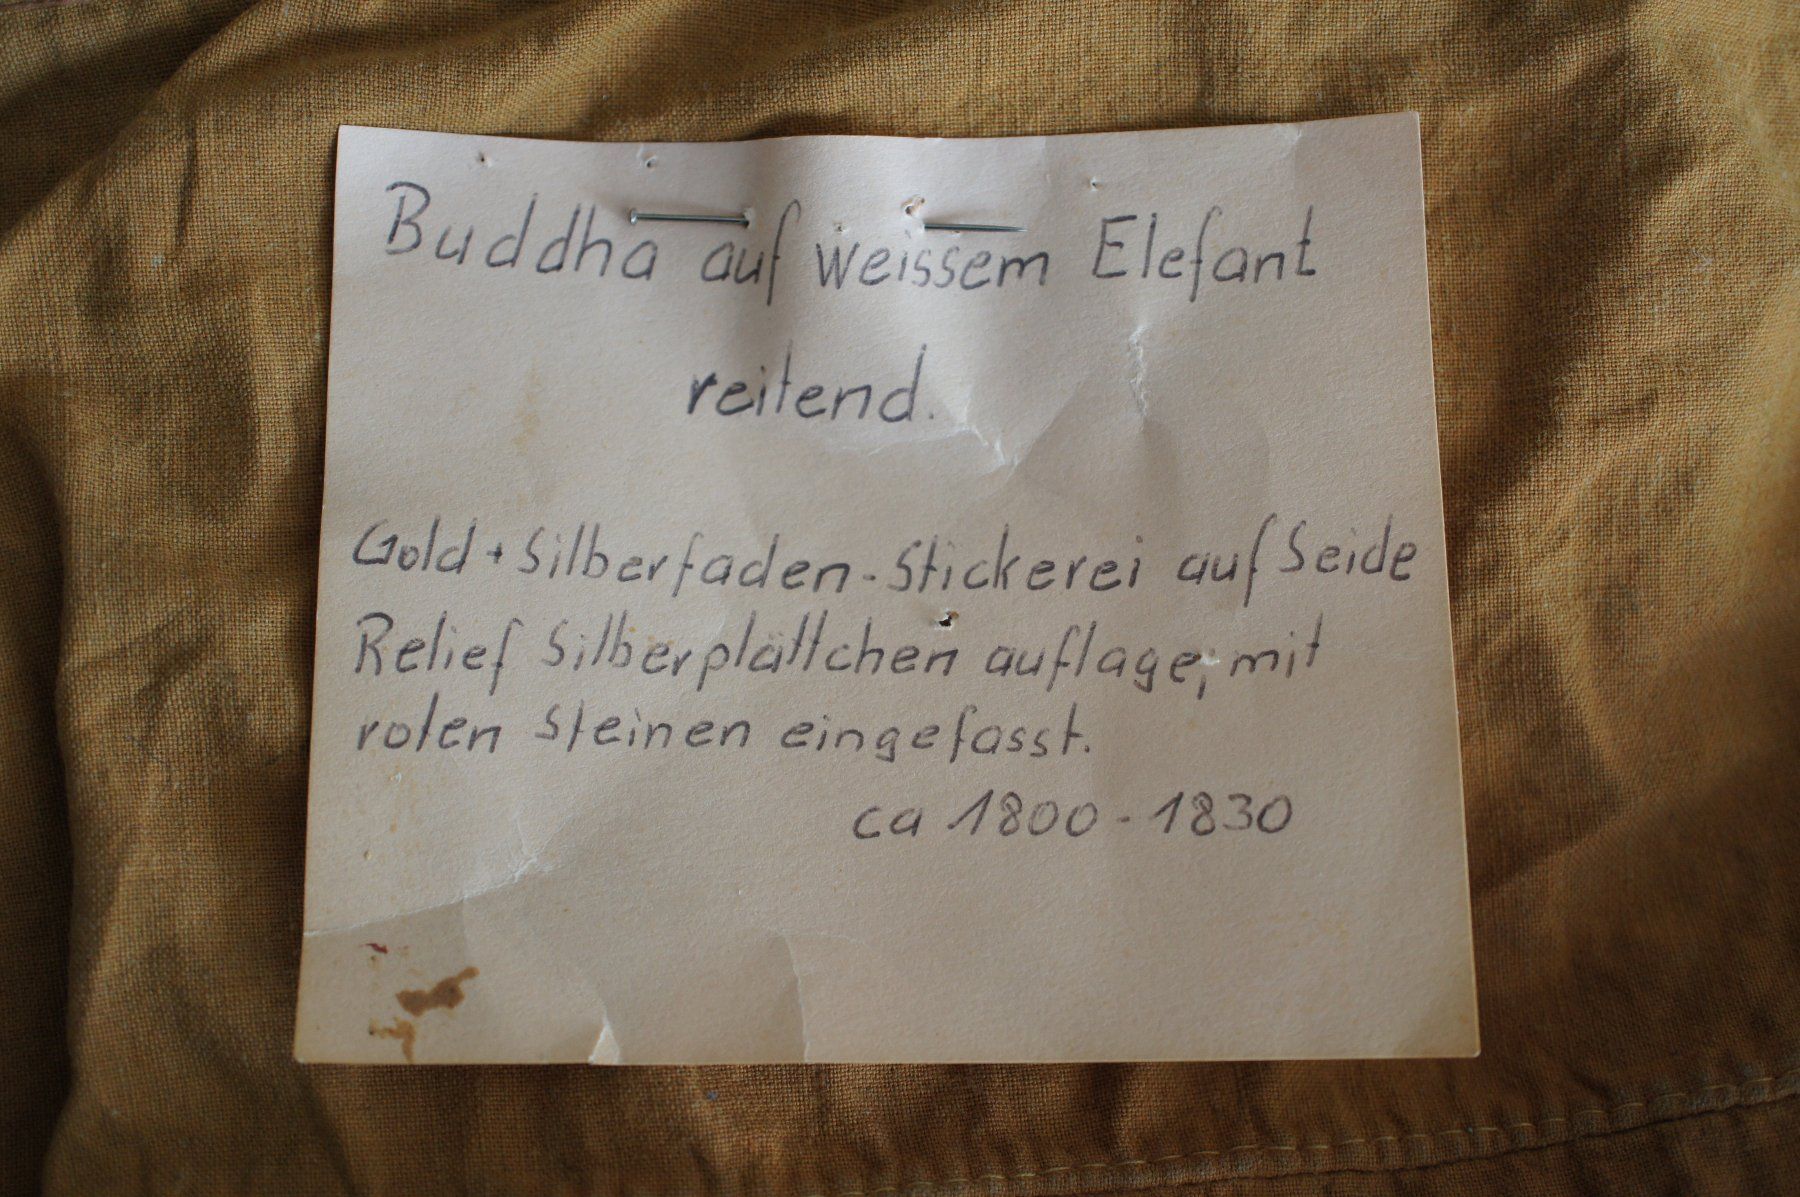 Buddha auf weissem Elefant
reitend.
Gold + Silberfaden-Stickerei auf Seide
Relief Silberplättchen auflage, mit
roten Steinen eingefasst.
ca 1800 - 1830